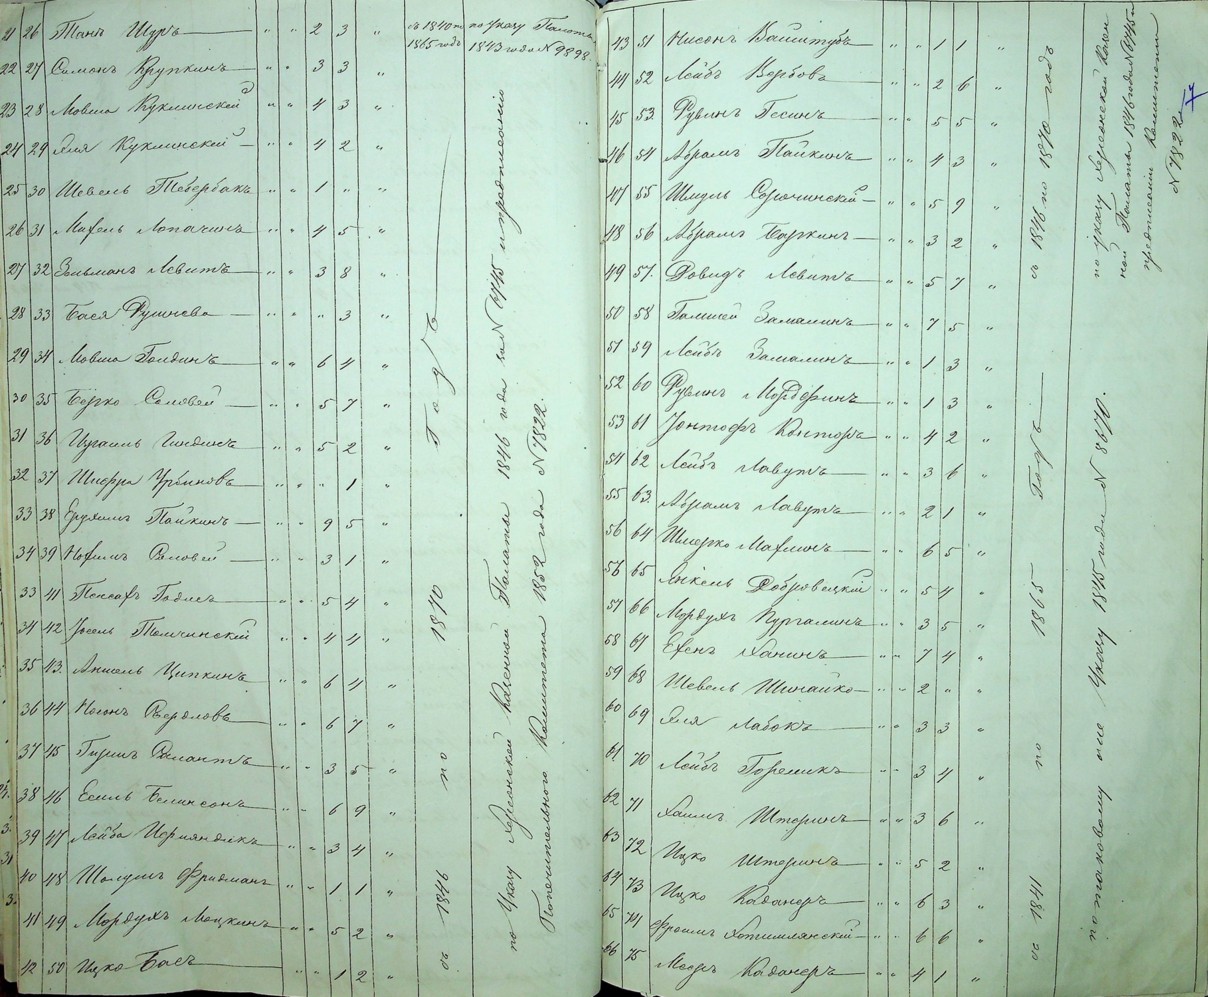 21 26 Танъ Шуръ " " 2 3 " съ 1840 по 1865 годъ по Указу Палаты 1843 года № 9898.
22 27 Симонъ Крупкинъ " " 3 3 "
23 28 Мовша Куклинской " " 4 3 "
24 29 Эля Куклинской " " 4 2 "
25 30 Шевель " " 1 " "
26 31 Михель Лопачинъ " " 4 5 "
27 32 Зельманъ Левитъ " " 3 8 "
28 33 Бася " " " 3 "
29 34 Мовша Голдинъ " " 6 4 "
30 35 Берко Соловей " " 5 7 "
31 36 Израиль Гиндинъ " " 5 2 "
32 37 Шифра " " " 1 "
33 38 Ерухимъ Пайкинъ " " 9 5 "
34 39 Нохимъ Соловей " " 3 1 "
33 41 " " 5 4 "
34 42 Іосель Толчинскій " " 4 4 "
35 43. Аншель Ципкинъ " " 6 4 "
36 44 Носонъ Свердловъ " " 6 7 "
37 45 Гиршъ " " 3 5 "
38 46 Есель Белинсонъ " " 6 9 "
39 47 Лейба " " 3 4 "
40 48 Шолумъ Фридманъ " " 1 1 "
41 49 Мордухъ Моцкинъ " " 5 2 "
42 50 Ицко Басъ " " 1 2 "
съ 1846 по 1870 Годъ
по Указу Херсонской Казенной Палаты 1846 года за № 6745 и предписанію
Попечительного Комитета 1852 года № 7822.
43 51 Нисонъ Вайштубъ " " 1 1 "
44 52 Лейбъ Вербовъ " " 2 6 "
45 53. Рувинъ Песинъ " " 5 5 "
46 54 Абрамъ Пайкинъ " " 4 3 "
47 55 Шмуль Сорочинскій " " 5 9 "
48 56 Абрамъ Баркинъ " " 3 2 "
49 57. Довидъ Левитъ " " 5 7 "
50 58 Замалинъ " " 7 5 "
51 59 Лейбъ Замалинъ " " 1 3 "
52 60 Рувинъ " " 1 3 "
53 61 Іонтофъ Конторъ " " 4 2 "
54 62 Лейбъ Лавутъ " " 3 6 "
55 63. Абрамъ Лавутъ " " 2 1 "
56 64 Шмерко Махлинъ " " 6 5 "
56 65 Янкель Добровецкій " " 5 4 "
57 66 Мордухъ Цургалинъ " " 3 5 "
58 67 Ханинъ " " 7 4 "
59 68 Шевель " " 2 " "
60 69 Эля Лабокъ " " 3 3 "
61 70 Лейбъ Гореликъ " " 3 4 "
62 71 Хаимъ Штеринъ " " 3 6 "
63 72 Ицко Штеринъ " " 5 2 "
64 73 Ицко Каданеръ " " 6 3 "
65 74 Фроимъ Хотимлянскій " " 6 6 "
66 75 Мееръ Каданеръ " " 4 1 "
съ 1846 по 1870 годъ
по указу Херсонской Казен
ной Палаты 1846 года № 6745 и
предписанію Комитета
№ 7822.
съ 1841 по 1865 Годъ
по таковому же Указу 1845 года № 8670.